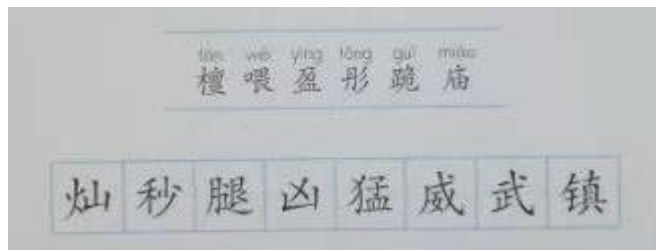 tán wèi yíng tóng guì miào
檀 喂 盈 彤 跪 庙
灿 秒 腿 凶 猛 威 武 镇